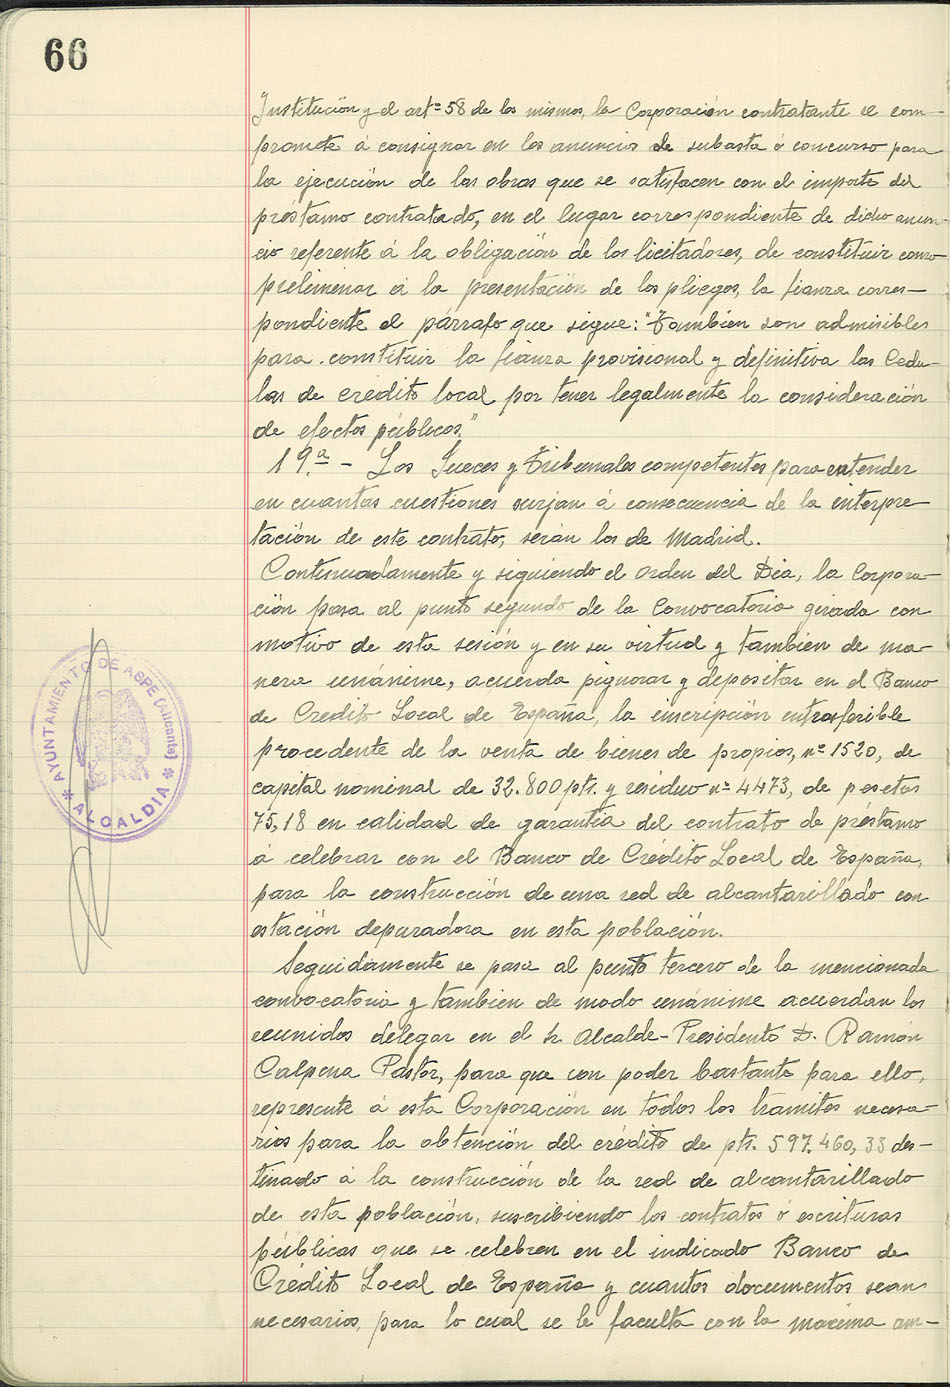 66
Institución y el artº 58 de los mismos, la Corporación contratante se com-
promete á consignar en los anuncios de subasta ó concurso para
la ejecución de las obras que se satisfacen con el importe del
préstamo contratado, en el lugar correspondiente de dicho anun-
cio referente á la obligación de los licitadores, de constituir como
preliminar á la presentación de los pliegos, la fianza corres-
pondiente el párrafo que sigue: "También son admisibles
para constituir la fianza provisional y definitiva las Cedu-
las de crédito local por tener legalmente la consideración
de efectos públicos."
19.ª - Los Jueces y Tribunales competentes para entender
en cuantas cuestiones surjan á consecuencia de la interpre-
tación de este contrato, serán los de Madrid.
Continuadamente y siguiendo el orden del Dia, la Corpora-
ción pasa al punto segundo de la Convocatoria girada con
motivo de esta sesión y en su virtud y tambien de ma-
nera unánime, acuerda pignorar y depositar en el Banco
de Credito Local de España, la inscripción intrasferible
procedente de la venta de bienes de propios, nº 1520, de
capital nominal de 32.800 pts. y residuo nº 4473, de pesetas
75,18 en calidad de garantía del contrato de préstamo
á celebrar con el Banco de Crédito Local de España,
para la construcción de una red de alcantarillado con
estación depuradora en esta población.
Seguidamente se pasa al punto tercero de la mencionada
convocatoria y tambien de modo unánime acuerdan los
reunidos delegar en el Sr. Alcalde-Presidente D. Ramón
Calpena Pastor, para que con poder bastante para ello,
represente á esta Corporación en todos los tramites necesa-
rios para la obtención del crédito de pts. 597.460,33 des-
tinado á la construcción de la red de alcantarillado
de esta población, suscribiendo los contratos ó escrituras
públicas que se celebren en el indicado Banco de
Crédito Local de España y cuantos documentos sean
necesarios, para lo cual se le faculta con la maxima am-
* AYUNTAMIENTO DE ASPE (Alicante) *
ALCALDIA